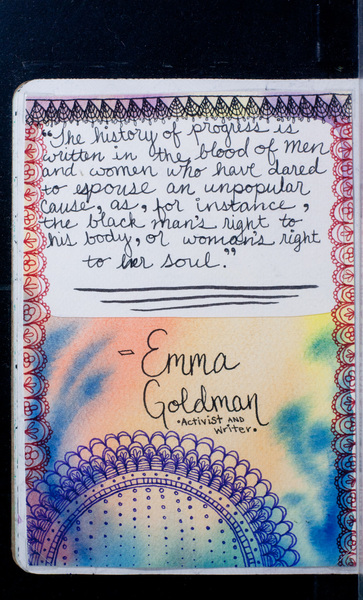 "The history of progress is
written in the blood of men
and women who have dared
to espouse an unpopular
cause, as, for instance,
the black man's right to
his body, or woman's right
to her soul."
- Emma
Goldman
•Activist AND
Writer•